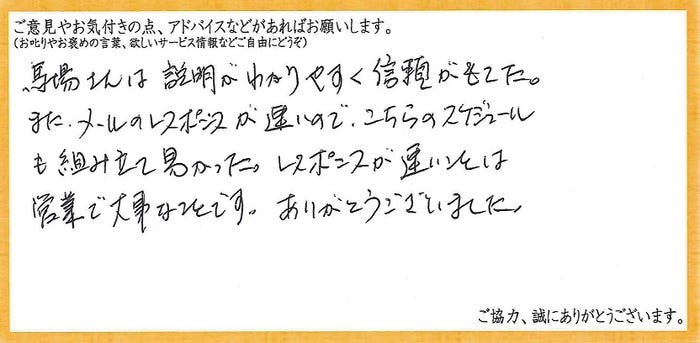 ご意見やお気付きの点、アドバイスなどがあればお願いします。
(お叱りやお褒めの言葉、欲しいサービス情報などご自由にどうぞ)
馬場さんは説明がわかりやすく信頼がもてた。
また、メールのレスポンスが速いので、こちらのスケジュール
も組み立て易かった。レスポンスが速いことは
営業で大事なことです。ありがとうございました。
ご協力、誠にありがとうございます。